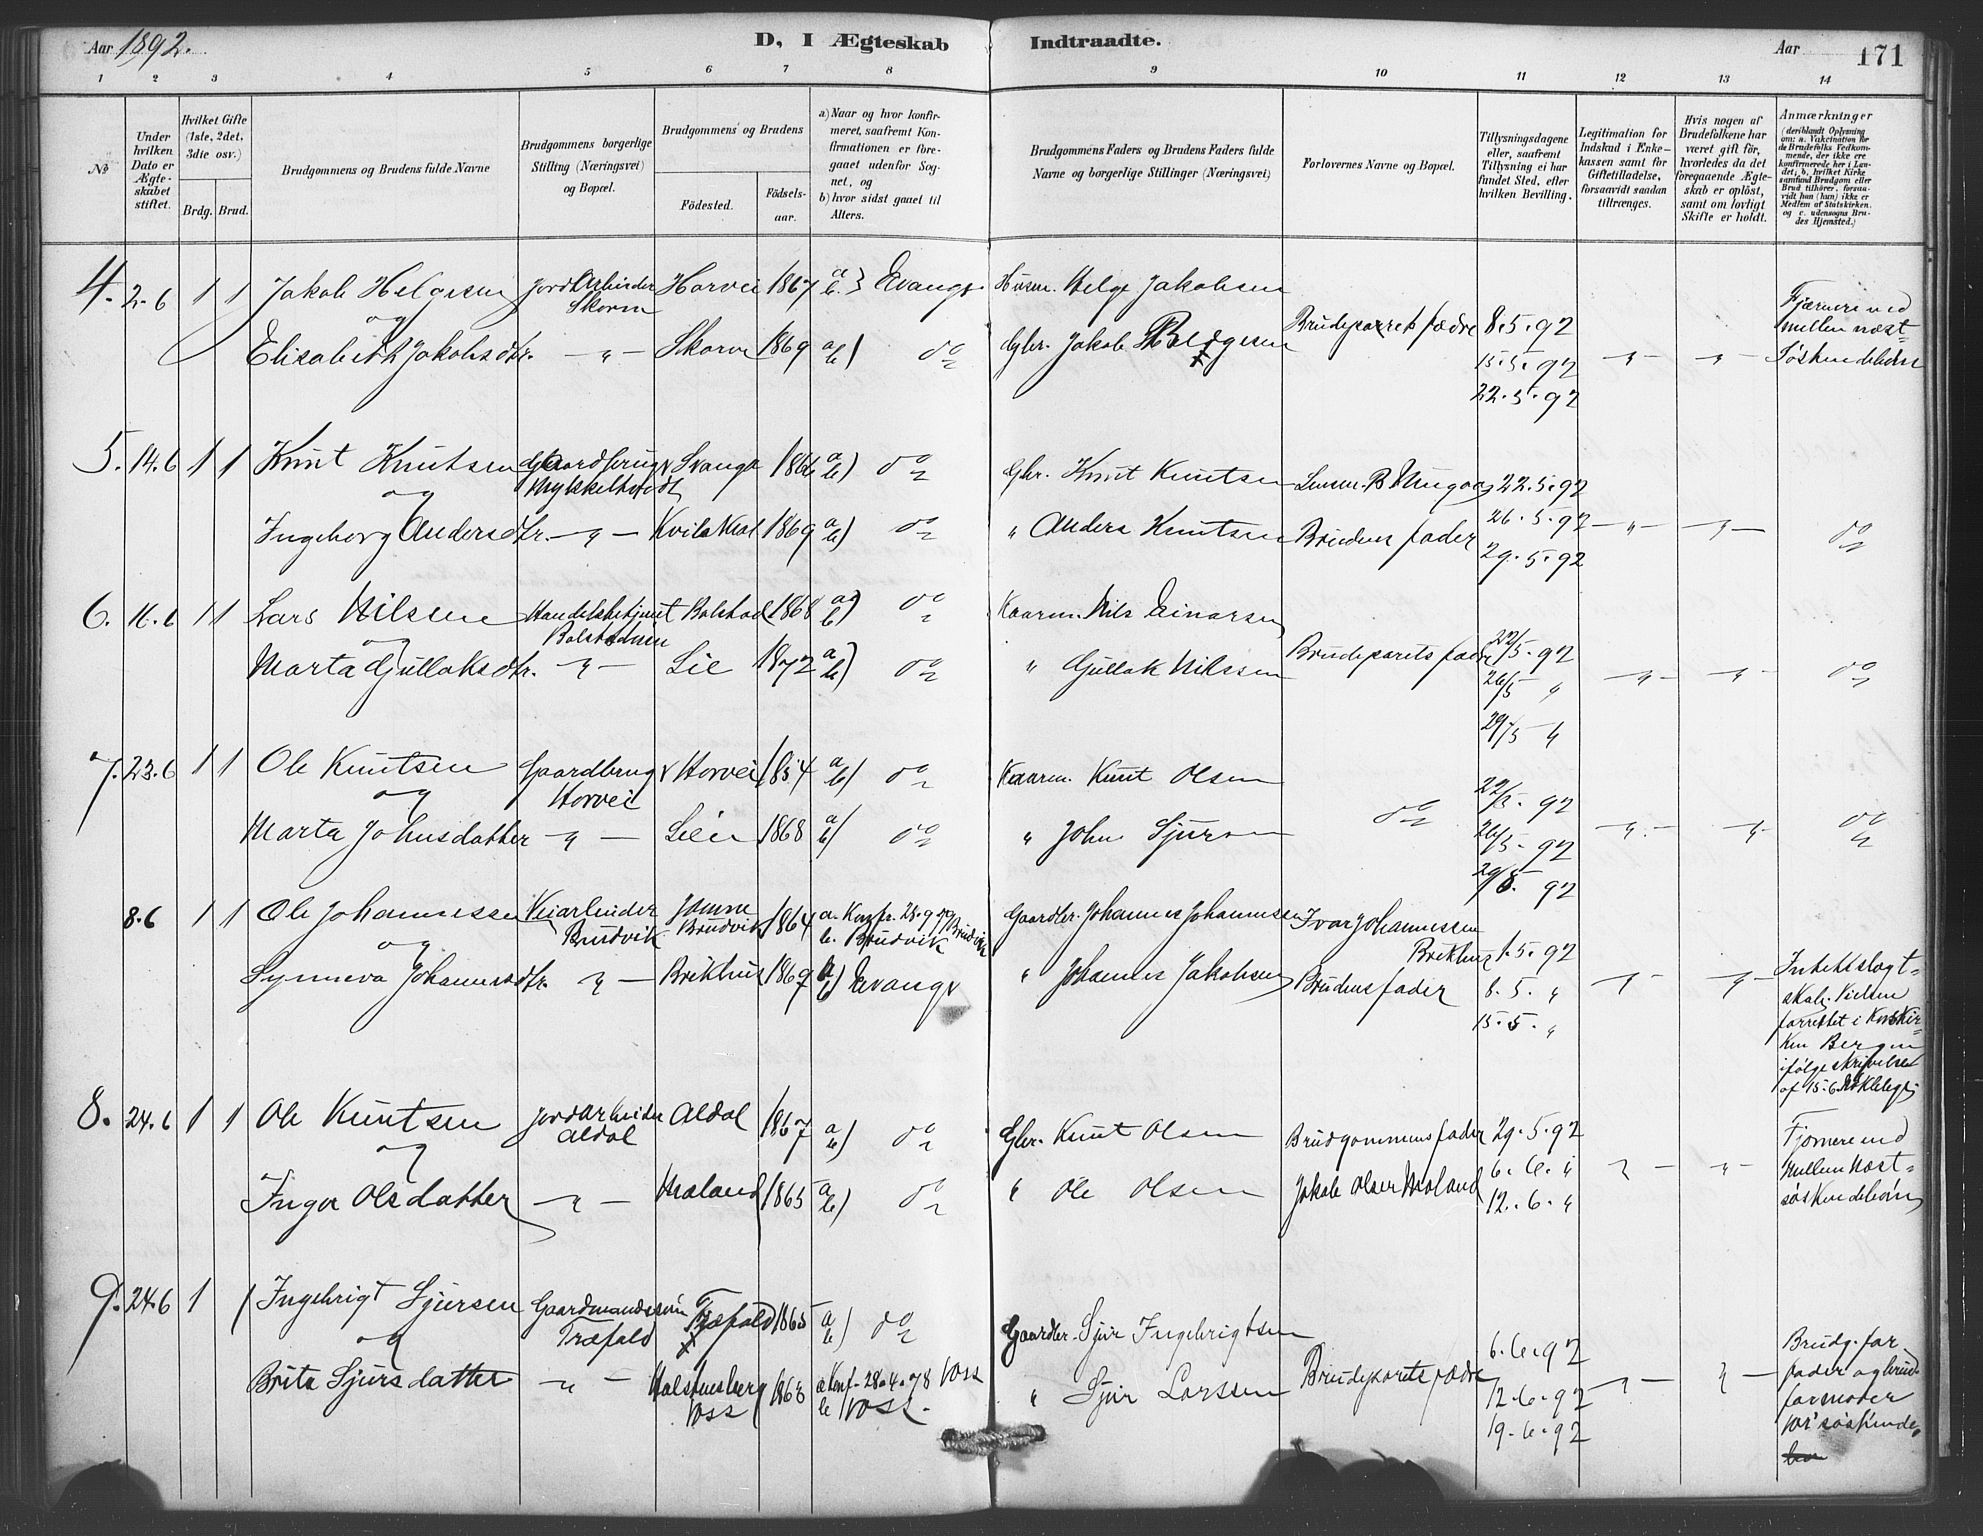 Aar 1892. D, I Ægteskab Indtraadte. Aar 171
1 2 3 4 5 6 7 8 9 10 11 12 13 14
No
Under hvilken Dato er Ægteskabet stiftet.
Hvilket Gifte (1ste, 2det, 3die osv.)
Brdg. Brud.
Brudgommens og Brudens fulde Navne
Brudgommens borgerlige Stilling (Næringsvei) og Bopæl.
Brudgommens og Brudens
Fødested. Fødselsaar.
a) Naar og hvor konfirmeret, saafremt Konfirmationen er foregaaet udenfor Sognet, og
b) hvor sidst gaaet til Alters.
Brudgommens Faders og Brudens Faders fulde Navne og borgerlige Stillinger (Næringsvei)
Forlovernes Navne og Bopæl.
Tillysningsdagene eller, saafremt Tillysning ei har fundet Sted, efter hvilken Bevilling.
Legitimation for Indskud i Enkekassen samt for Giftetilladelse, forsaavidt saadan tiltrænges.
Hvis nogen af Brudefolkene har været gift før, hvorledes da det foregaaende Ægteskab er opløst, samt om lovligt Skifte er holdt.
Anmærkninger
(deriblandt Oplysning om: a. Vakcination for de Brudefolks Vedkommende, der ikke ere konfirmerede her i Landet; b. hvilket Kirkesamfund Brudgom eller Brud tilhører, forsaavidt han (hun) ikke er Medlem af Statskirken, og c. udensogns Brudes Hjemsted.)
4. 2.6 1 1 Jakob Helgesen Jordarbeider Skorve Horvei 1867 a b } Evangr Husm. Helge Jakobsen
og
Elisabeth Jakobsdtr. — " — Skorve 1869 a b) do Gbr. Jakob Helgesen Brudeparrets fædre 8.5.92
15.5.92 — " — " —
22.5.92
Søskendebørn
5. 14.6 1 1 Knut Knutsen Gaardbruger Mykkeltveidt Evangr 1866 a b) do Gbr. Knut Knutsen 22.5.92
og
Ingeborg Andersdtr. — " — 1869 a b) do " Anders Knutsen Brudens fader 26.5.92 — " — " — do
29.5.92
6. 16.6 1 1 Lars Nilsen Handelsbetjent Bolstadøren Bolstad 1868 a b) do Kaarm. Nils Einarsen
og
Marta Gjullaksdtr. — " — Lie 1872 a b) do " Gjullak Nilssen Brudeparets fædre 22/5.92
26/5 " — " — " — do
29/5 "
7. 23.6 1 1 Ole Knutsen Gaardbrugr Horvei Horvei 1854 a b) do Kaarm. Knut Olsen
og
Marta Johnsdatter — " — Lien 1868 a b) do " John Sjursen do 22/5. 92
26/5- 92 — " — " — do
29/5. 92
8.6 1 1 Ole Johannessen Veiarbeider Brudvik Brudvik 1864 a. Konf. b. Brudvik Gaardbr. Johannes Johannessen Ivar Johannessen Brekhus 1.5.92
og
Synneva Johannesdtr. — " — Brekhus 1869 a b) Evangr " Johannes Jakobsen Brudens fader 8.5. " — " — " —
15.5. "
Intet slægtskab. Vielsen forrettet i Korskirken Bergen ifølge skrivelse af 15-6
8. 24.6 1 1 Ole Knutsen Jordarbeider Aldal Aldal 1867 a b) do Gbr. Knut Olsen Brudgommens fader 29.5.92
og
Inga Olsdatter — " — Maland 1865 a b) do " Ole Olsen Jakob Olsen Moland 6.6. "
12.6. "
søskendebørn
9. 24.6 1 1 Ingebrigt Sjursen Gaardmandssøn Træfald Træfald 1865 a b) do Gaardbr. Sjur Ingebrigtsen
og
Brita Sjursdatter — " — Voss 1863 a Konf. 28.4.78 Voss b Voss. " Sjur Larssen Brudeparets fædre 6.6.92
12.6.92 — " — " —
19.6.92
Brudg. farfader og brud. farmoder var søskende